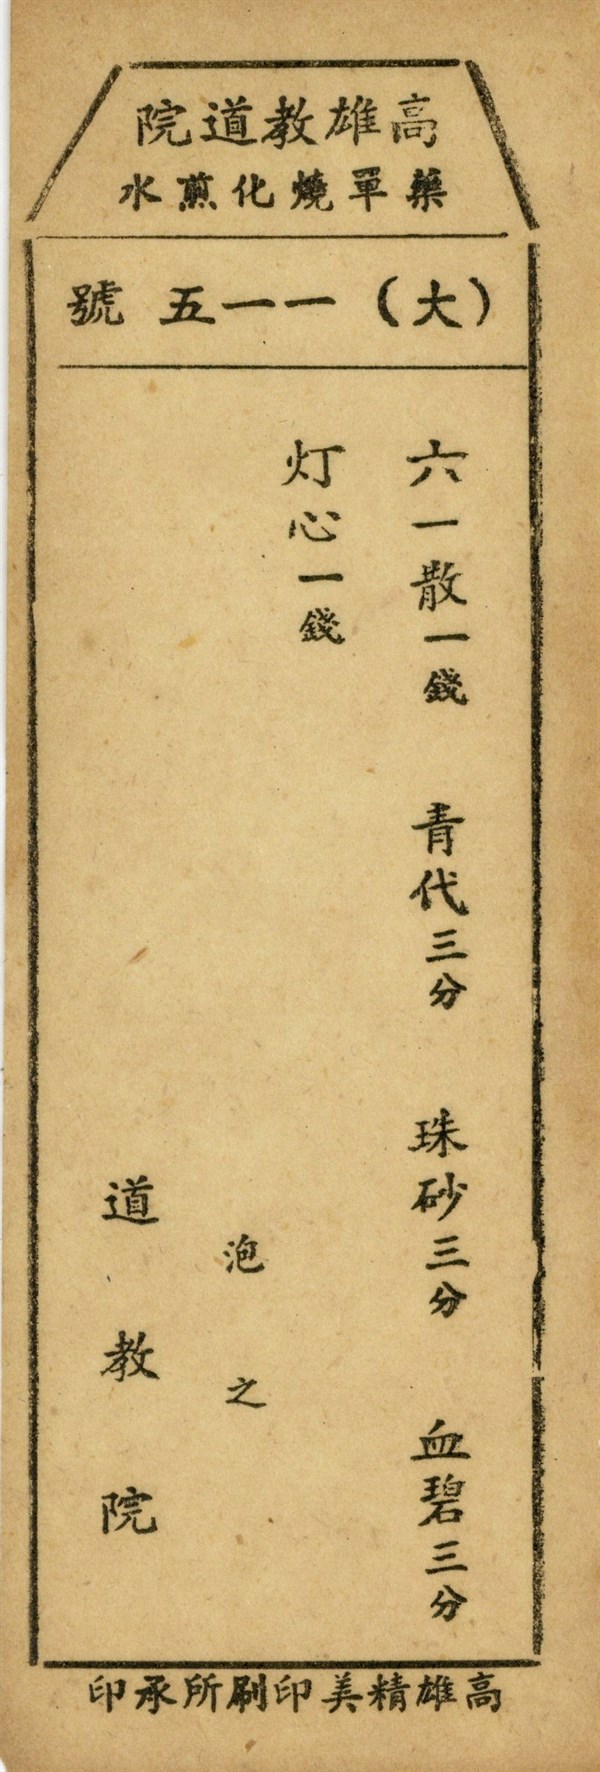 高雄教道院
藥單燒化煎水
（大）一一五號
六一散一錢 青代三分 珠砂三分 血碧三分
灯心一錢
泡之
道教院
高雄精美印刷所承印